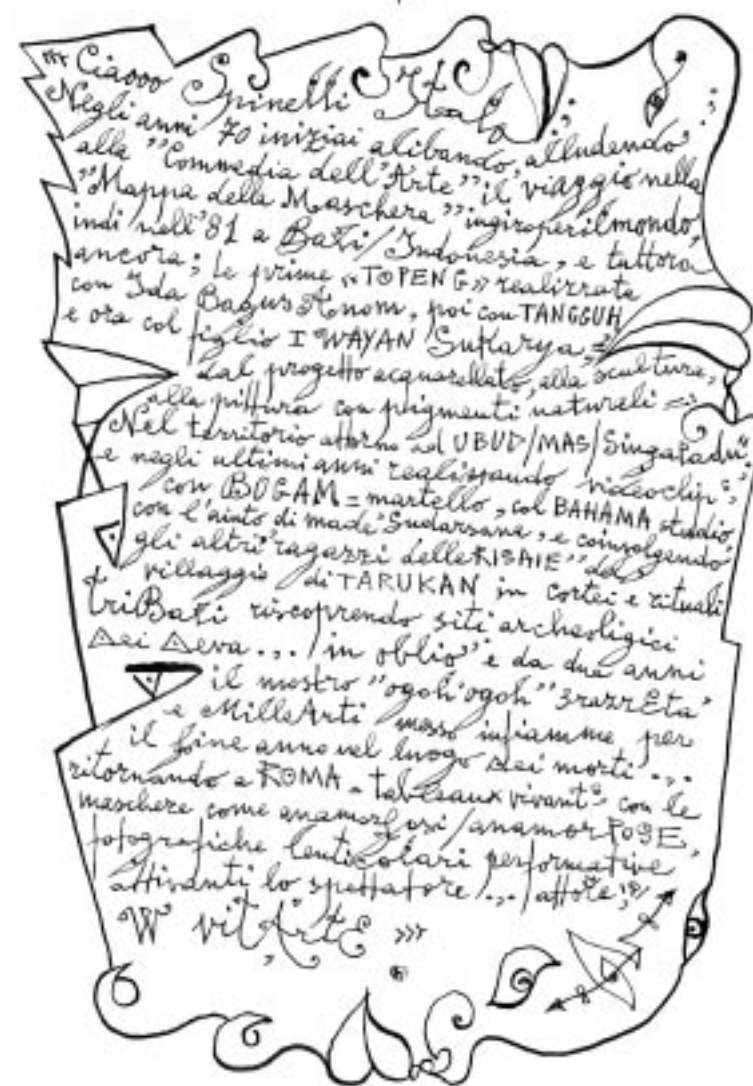 ««« Ciaooo Spinelli Italo
Negli anni '70 iniziai alibando, alludendo
alla "Commedia dell'Arte" il viaggio nella
"Mappa della Maschera" ingiroperilmondo,
indi nell'81 a Bali/Indonesia, e tuttora
ancora; le prime «TOPENG» realizzate
con Ida Bagus Anom, poi con TANGGUH
e ora col figlio I WAYAN Sukarya =
dal progetto acquarellato, alla scultura,
alla pittura con pigmenti naturali =
Nel territorio attorno ad UBUD/MAS/Singapadu
e negli ultimi anni realizzando videoclip,
con BOGAM = martello, col BAHAMA studio,
con l'aiuto di made Sudarsana, e coinvolgendo
gli altri "ragazzi delle RISAIE" del
villaggio di TARUKAN in cortei e rituali
triBali riscoprendo siti archeoligici
Dei Deva ... / in oblio" e da due anni
il mostro "ogoh'ogoh" 3razzEta"
e MilleArti messo infiamme per
il fine anno nel luogo dei morti ...
ritornando a ROMA - tableaux vivants con le
maschere come anamorfosi/anamorPOSE,
fotografiche lenticolari performative
attivanti lo spettatore ... / attore,
W vitArtE »»»